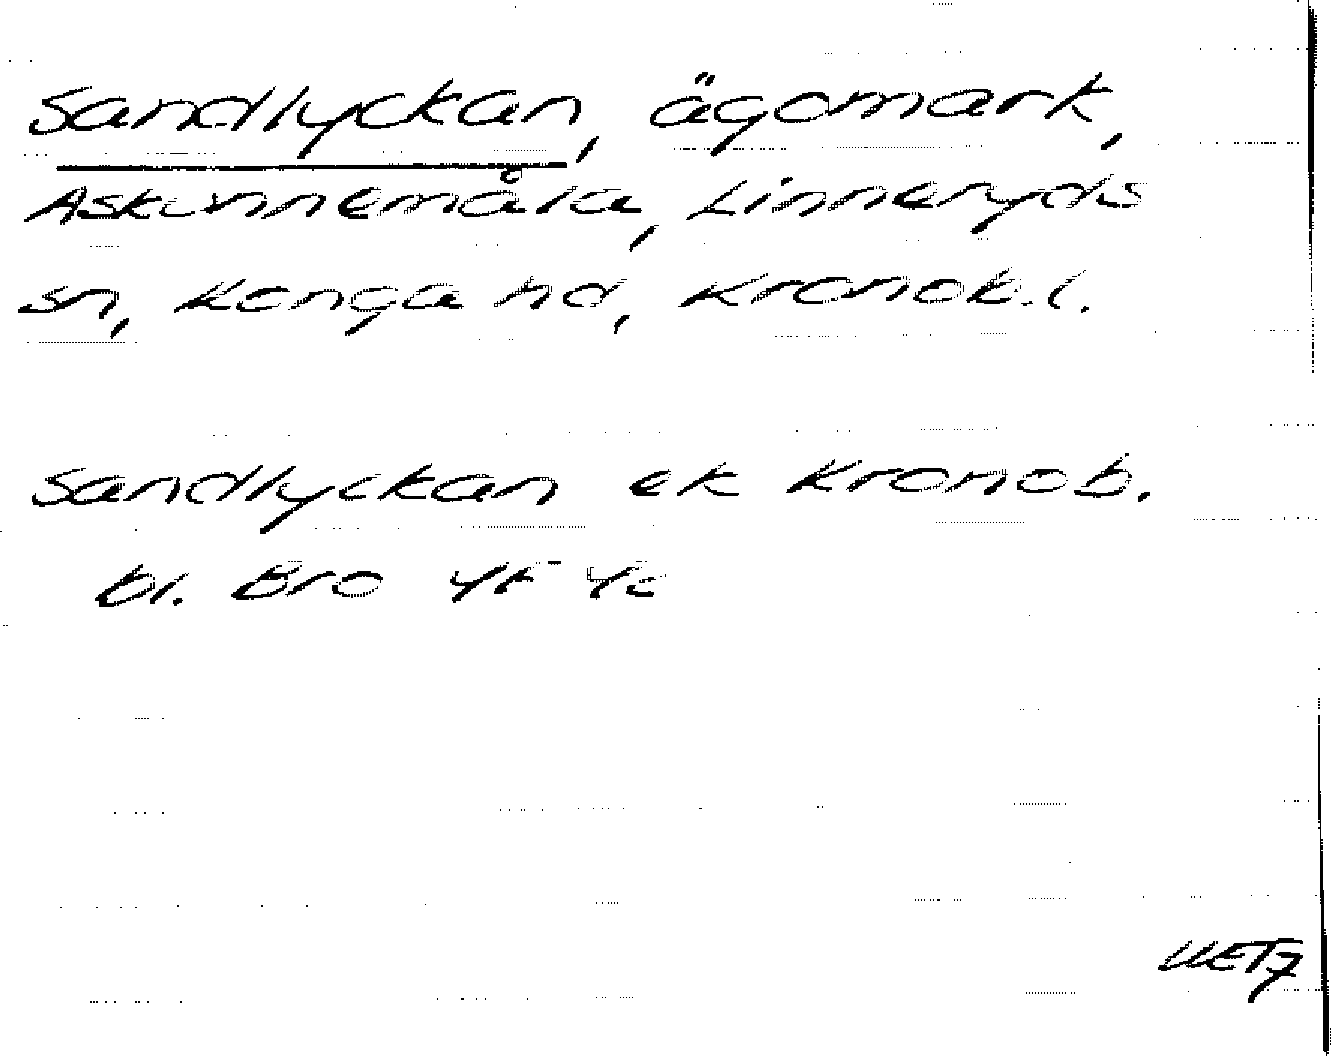 Sandlyckan, ägomark,
Askunnemåla, Linneryds
sn, Konga hd, Kronob.l.
Sandlyckan ek Kronob.
bl. Bro 4f